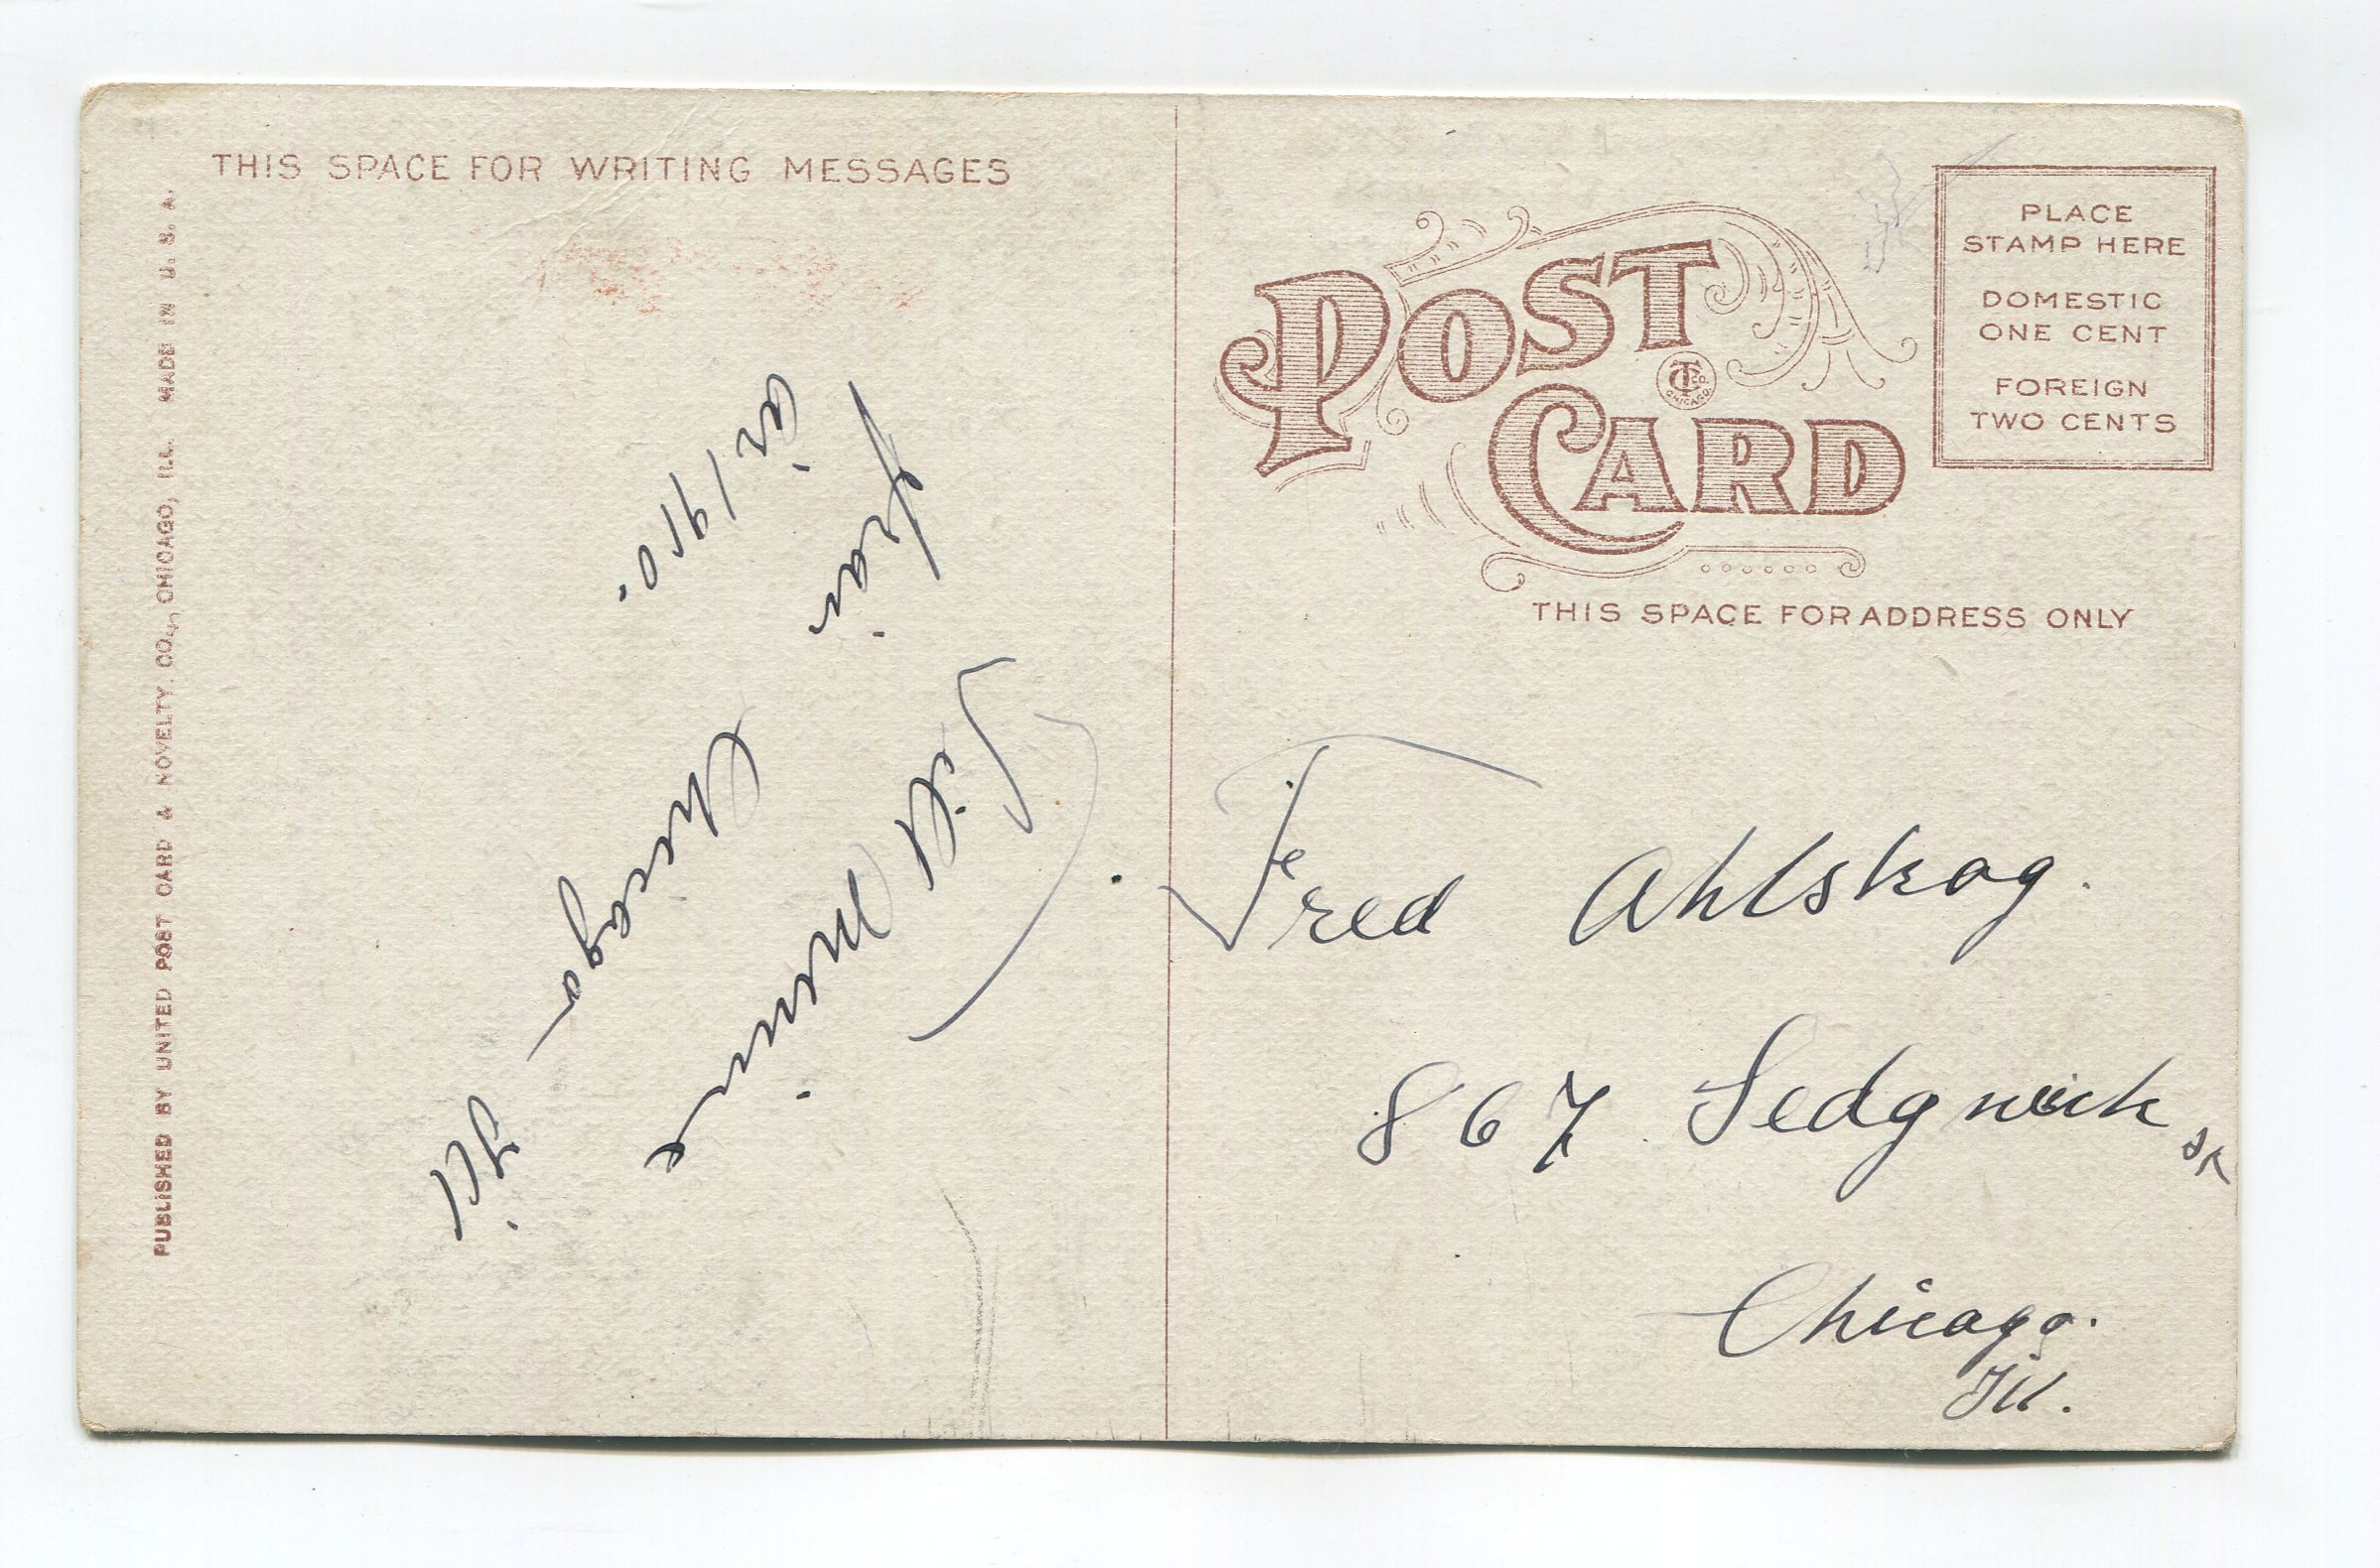 THIS SPACE FOR WRITING MESSAGES
PUBLISHED BY UNITED POST CARD & NOVELTY. CO., CHICAGO, ILL. MADE IN U. S. A.
Till Minne
från Chicago Ill
år 1910.
POST CARD
CHICAGO
PLACE
STAMP HERE
DOMESTIC
ONE CENT
FOREIGN
TWO CENTS
THIS SPACE FOR ADDRESS ONLY
Fred Ahlskog.
867 Sedgwick St
Chicago.
Ill.